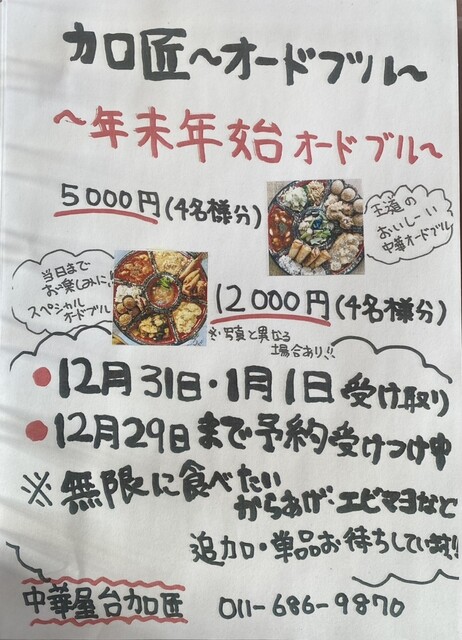 加匠～オードブル～
～年末年始オードブル～
5000円(4名様分)
王道の
おいしーい
中華オードブル
当日まで
お楽しみに!!
スペシャル
オードブル
12000円(4名様分)
※写真と異なる
場合あり!!
●12月31日・1月1日受け取り
●12月29日まで予約受けつけ中
※無限に食べたい
からあげ・エビマヨなど
追加・単品お待ちしています!!
中華屋台加匠 011-686-9870